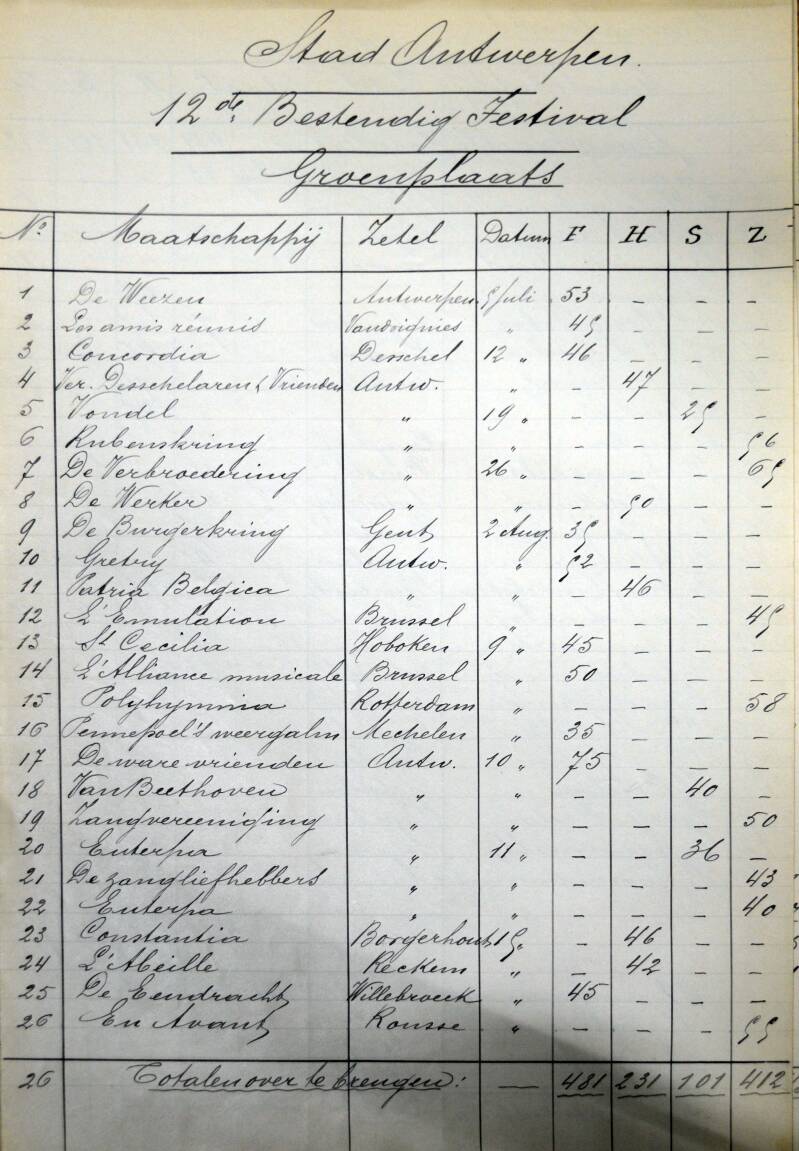 Stad Antwerpen.
12de. Bestendig Festival
Groenplaats
No. Maatschappij Zetel Datum F H S Z
1 De Weezen Antwerpen 5 juli 53 – – –
2 Les amis réunis „ 45 – – –
3 Concordia Desschel 12 „ 46 – – –
4 Ver. Desschelaren & Vrienden Antw. „ – 47 – –
5 Vondel „ 19 „ – – 25 –
6 Rubenskring „ „ – – – 56
7 De Verbroedering „ 26 „ – – – 65
8 De Werker „ „ – 50 – –
9 De Burgerkring Gent 2 Aug. 35 – – –
10 Gretry Antw. „ 52 – – –
11 Patria Belgica „ „ – 46 – –
12 L'Emulation Brussel „ – – – 45
13 St Cecilia Hoboken 9 „ 45 – – –
14 L'Alliance musicale Brussel „ 50 – – –
15 Polyhymnia Rotterdam „ – – – 58
16 Pennepoel's weergalm Mechelen „ 35 – – –
17 De ware vrienden Antw. 10 „ 75 – – –
18 Van Beethoven „ „ – – 40 –
19 Zangvereeniging „ „ – – – 50
20 Euterpa „ 11 „ – – 36 –
21 De zangliefhebbers „ „ – – – 43
22 Euterpa „ „ – – – 40
23 Constantia Borgerhout 15 „ – 46 – –
24 L'Abeille Reckem „ – 42 – –
25 De Eendracht Willebroeck „ 45 – – –
26 En Avant Ronsse „ – – – 55
26 Totalen over te brengen: — 481 231 101 412